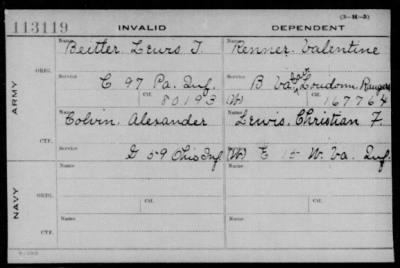 (3-H-3)
113119 INVALID DEPENDENT
Name Name
Beitler Lewis T. Renner Valentine
ARMY
ORIG.
Service Service
C 97 Pa. Inf. B Va Loudoun Rangers
Ctf. Ctf.
80193 (W) 167764
Name
Colvin Alexander Lewis Christian F.
CTF.
Service
G 59 Ohio Inf (W) E 15 W. Va. Inf.
NAVY
ORIG.
Name Ctf. Name Ctf.
Service
CTF.
Name Name
Service